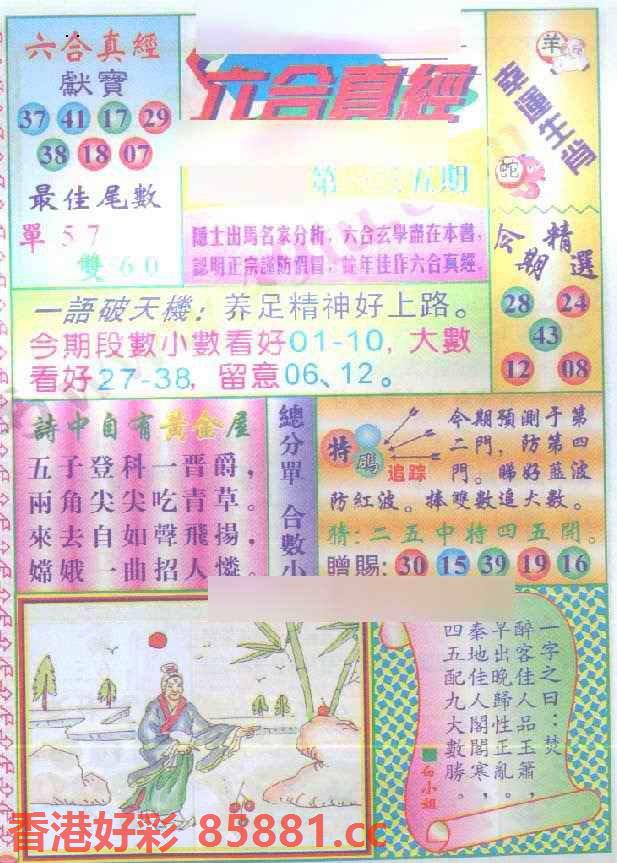 六合真經
獻寶
37 41 17 29
38 18 07
最佳尾數
單57
雙60
六合真經
五期
隱士出馬名家分析，六合玄學盡在本書，
認明正宗謹防假冒，蛇年佳作六合真經。
羊
幸運生肖
蛇
今期精選
28 24
43
12 08
一語破天機：养足精神好上路。
今期段數小數看好01-10，大數
看好27-38，留意06、12。
詩中自有黃金屋
五子登科一晋爵，
兩角尖尖吃青草。
來去自如聲飛揚，
嫦娥一曲招人憐。
總分單
合數小
特碼
追踪
今期預測于第
二門，防第四
門。睇好藍波
防紅波。捧雙數追大數。
猜：二五中特四五開。
贈賜：30 15 39 19 16
一字之曰：焚
醉客佳人品玉簫，
早出晚歸性正亂。
秦地佳人閣閣寒，
四五配九大數勝。
白小姐
香港好彩 85881.cc